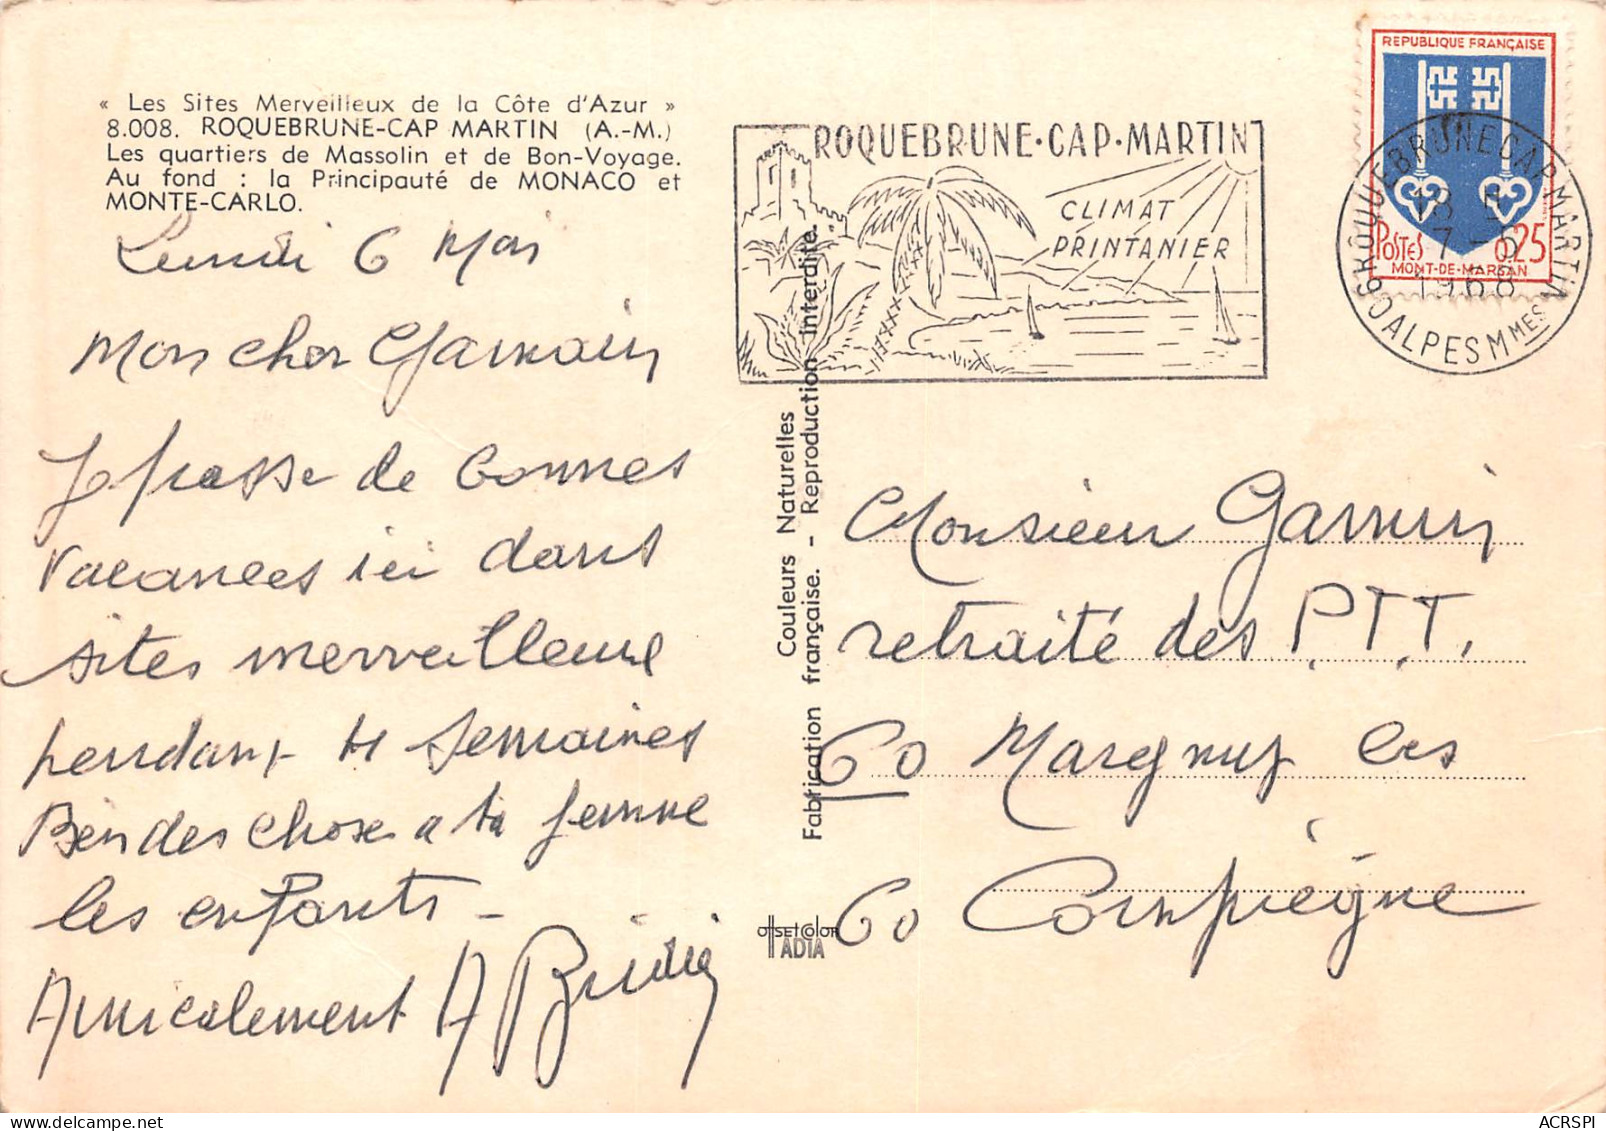 « Les Sites Merveilleux de la Côte d'Azur »
8.008. ROQUEBRUNE-CAP MARTIN (A.-M.)
Les quartiers de Massolin et de Bon-Voyage.
Au fond : la Principauté de MONACO et
MONTE-CARLO.
Lundi 6 Mai
Mon cher
Je passe de bonnes
vacances ici dans
sites merveilleux
pendant semaines
Bien des choses a ta femme
les enfants -
Amicalement A
Couleurs Naturelles
Fabrication française. - Reproduction interdite.
OFFSET COLOR
IADIA
ROQUEBRUNE·CAP·MARTIN
CLIMAT
PRINTANIER
REPUBLIQUE FRANÇAISE
POSTES 0,25
MONT-DE-MARSAN
ROQUEBRUNE CAP MARTIN
18 H
7 - 5
1968
ALPES MMES
Monsieur
retraité des P.T.T.
60 Margny les
Compiègne
60
ACRSPI